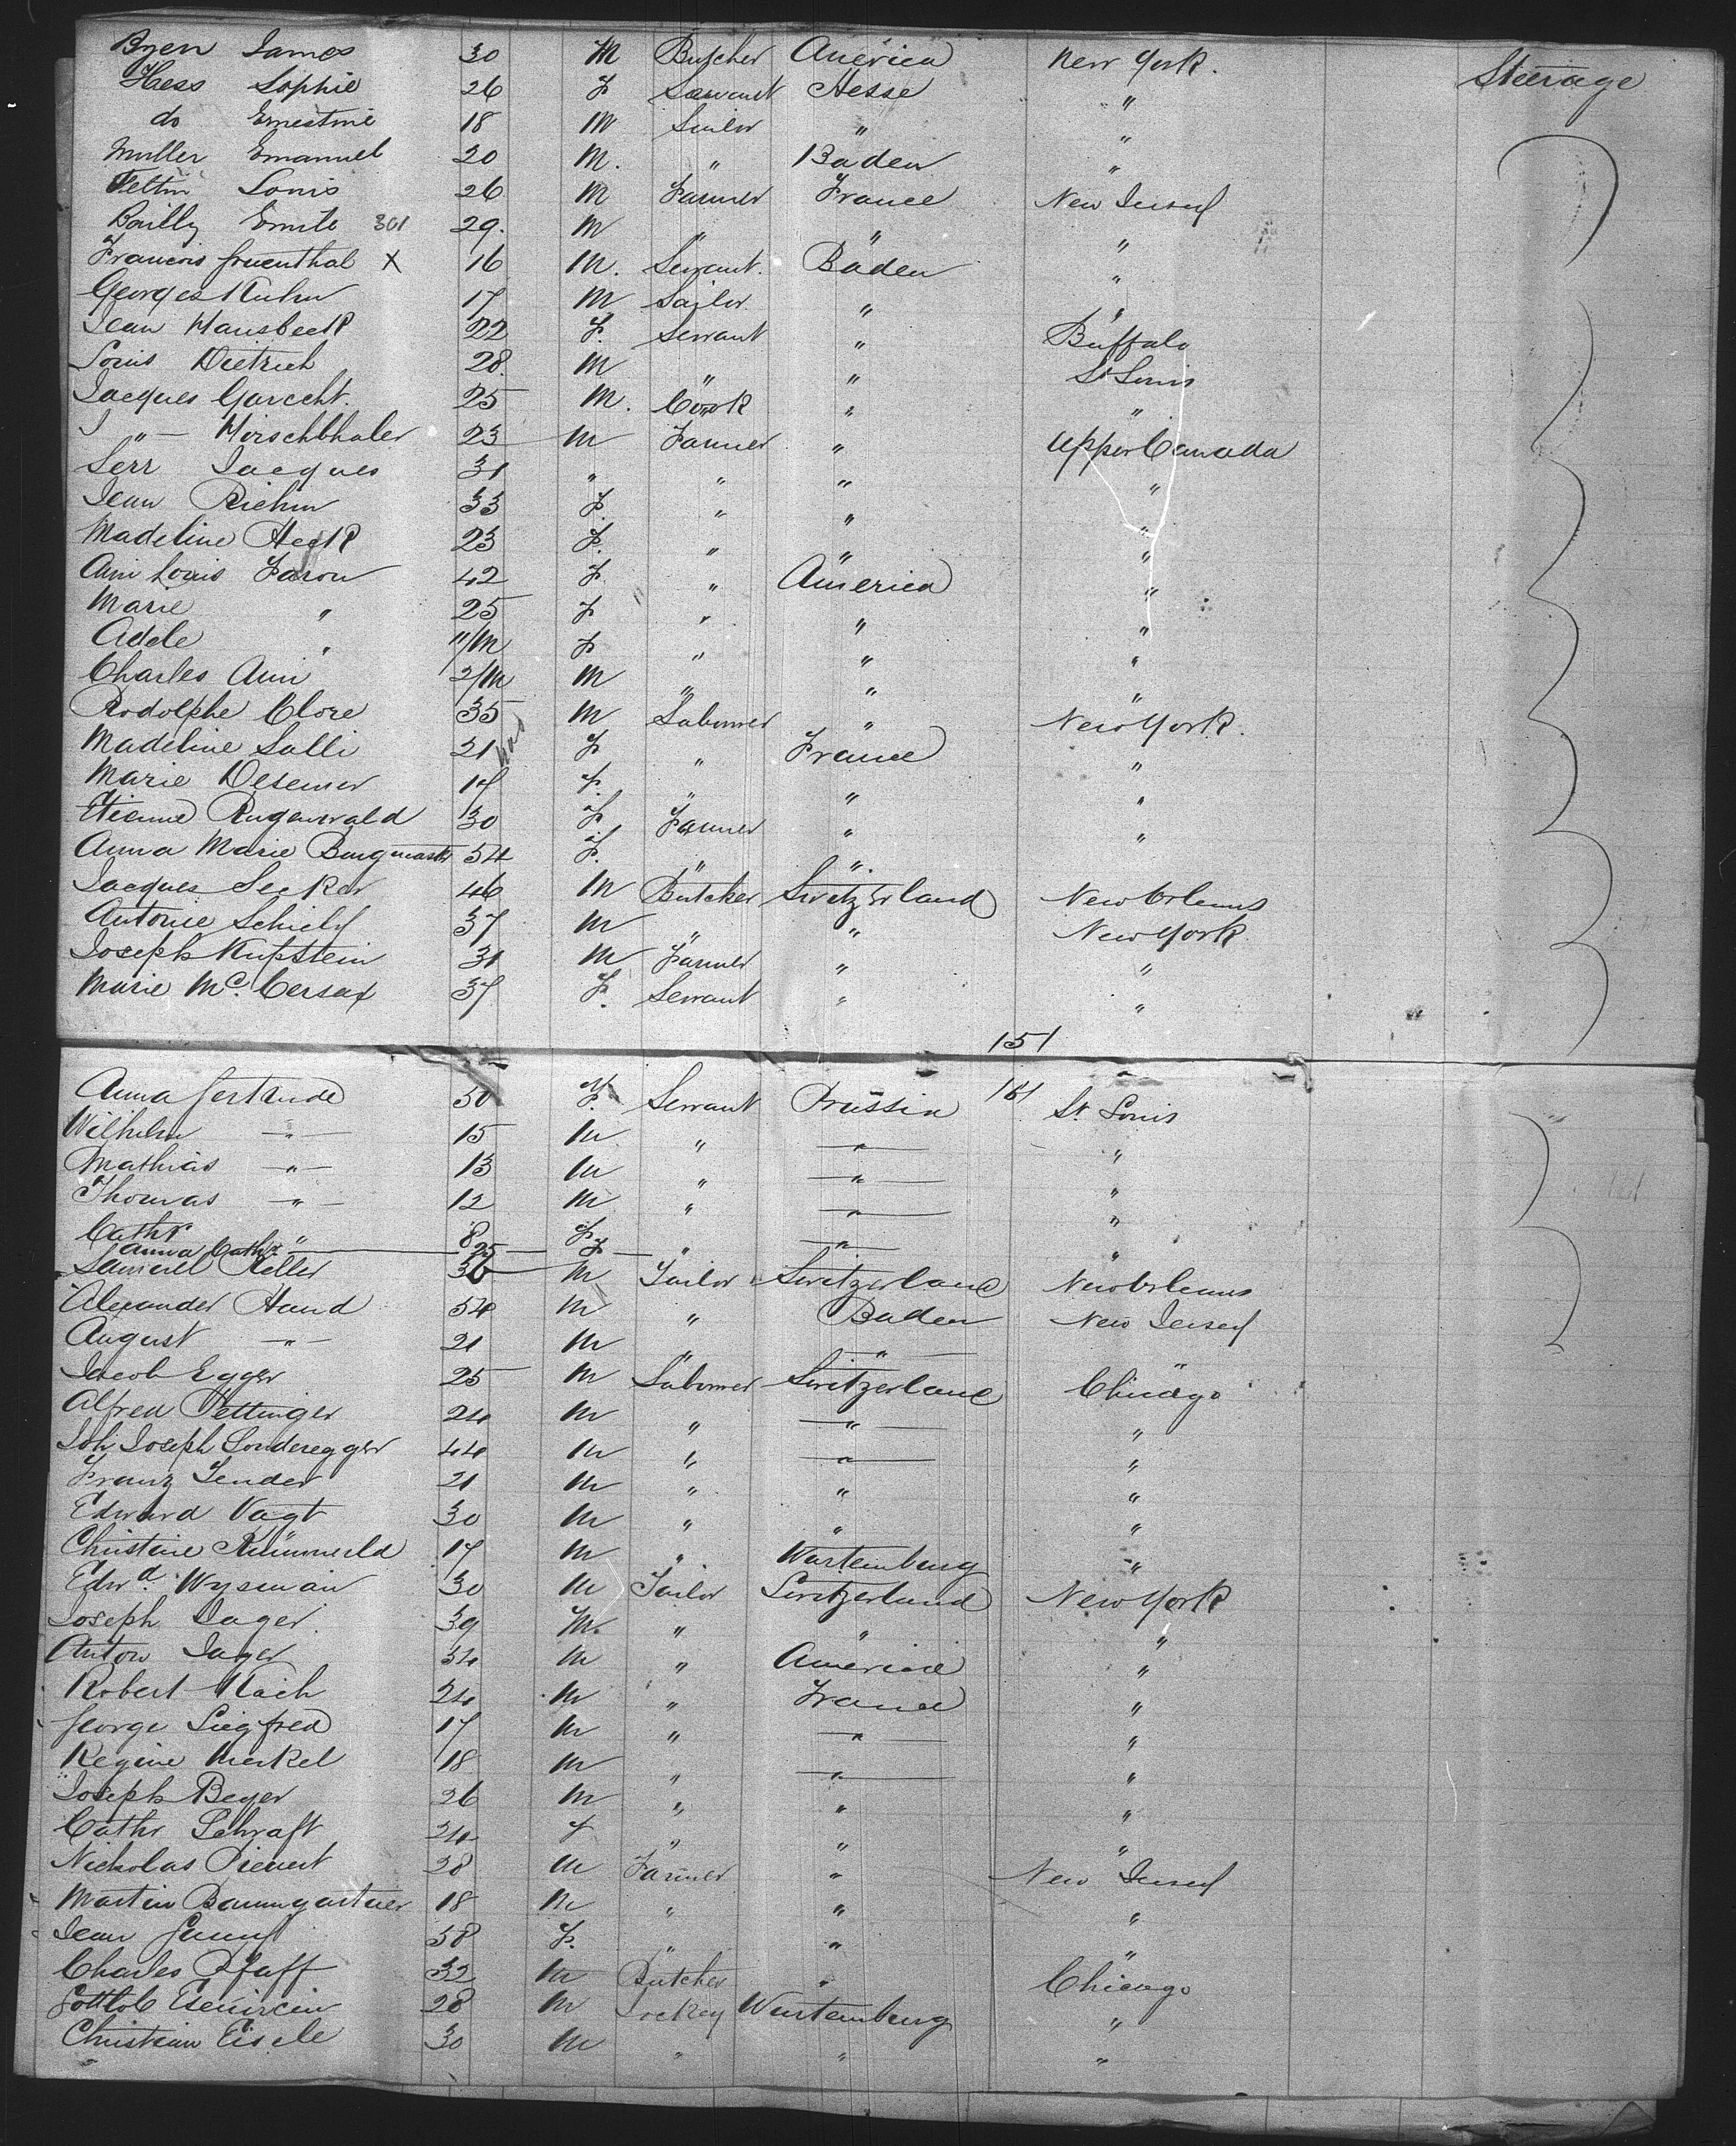 Byen James 30 M Butcher America New York. Steerage
Hess Sophie 26 F Servant Hesse "
do Ernestine 18 M Tailor " "
Muller Emanuel 20 M. " Baden "
Feltin Louis 26 M Farmer France New Jersey
Bailly Emile 301 29. M " " "
Francois Gruenthal X 16 M. Servant. Baden "
Georges Kuhn 17 M Tailor " "
Jean Hausbeck 22 F. Servant " Buffalo
Louis Dietrich 28. M " " St Louis
Jacques Garecht. 25 M. Cook " "
J " Hirschbhaler 23 M Farmer " Upper Canada
Serr Jacques 31 " " " "
Jean Riehm 33 F. " " "
Madeline Heck 23 F. " " "
Ami Louis Faron 42 F " America "
Marie " 25 F " " "
Adele " 11/M F " " "
Charles Ami 2/M M " " "
Rodolphe Clore 35 M Labourer " New York.
Madeline Salli 21 F " France "
Marie Desemer 17 F. " " "
Etienne Rugenwald 30 F Farmer " "
Anna Marie 54 F. " ".
Jacques Secker 46 M Butcher Switzerland New Orleans
Antoine Schiely 37 M " " New York
Joseph Kupstein 31 M Farmer " "
Marie Mc. Cersax 37 F. Servant " "
151
Anna Gertrude 50 F. Servant Prussia 151 St. Louis
Wilhelm " 15 M " " "
Mathias " 13 M " " "
Thomas " 12 M " " "
Cathr " 8 F " " "
Anna Cath " 25 F
Samuel Keller 36 M Tailor Switzerland New Orleans
Alexander Hand 54 M " Baden New Jersey
August " 21 M " " "
Jacob Egger 25 M Labourer Switzerland Chicago
Alfred Pettinger 24 M " " "
Joh Joseph Sonderegger 44 M " " "
Franz Zender 21 M " " "
Edward Vogt 30 M " " "
Christine Rümmerld 17 M " Wurtemburg "
Edwd. Wysman 30 M Tailor Switzerland New York
Joseph Jager 39 M. " " "
Anton Jager 34 M " America "
Robert Kach 24 M " France "
George Siegfred 17 M " " "
Regine Merkel 18 M " " "
Joseph Beyer 26 M " " "
Cathr Schraft 24 F " " "
Nickolas Pienert 28 M Farmer " New Jersey
Martin Baumgartner 18 M " " "
Jean Genny 58 F. " " "
Charles Pfaff 32 M Butcher " Chicago
Gottlob 28 M Jockey Wurtemburg "
Christian Eisele 30 M " " "